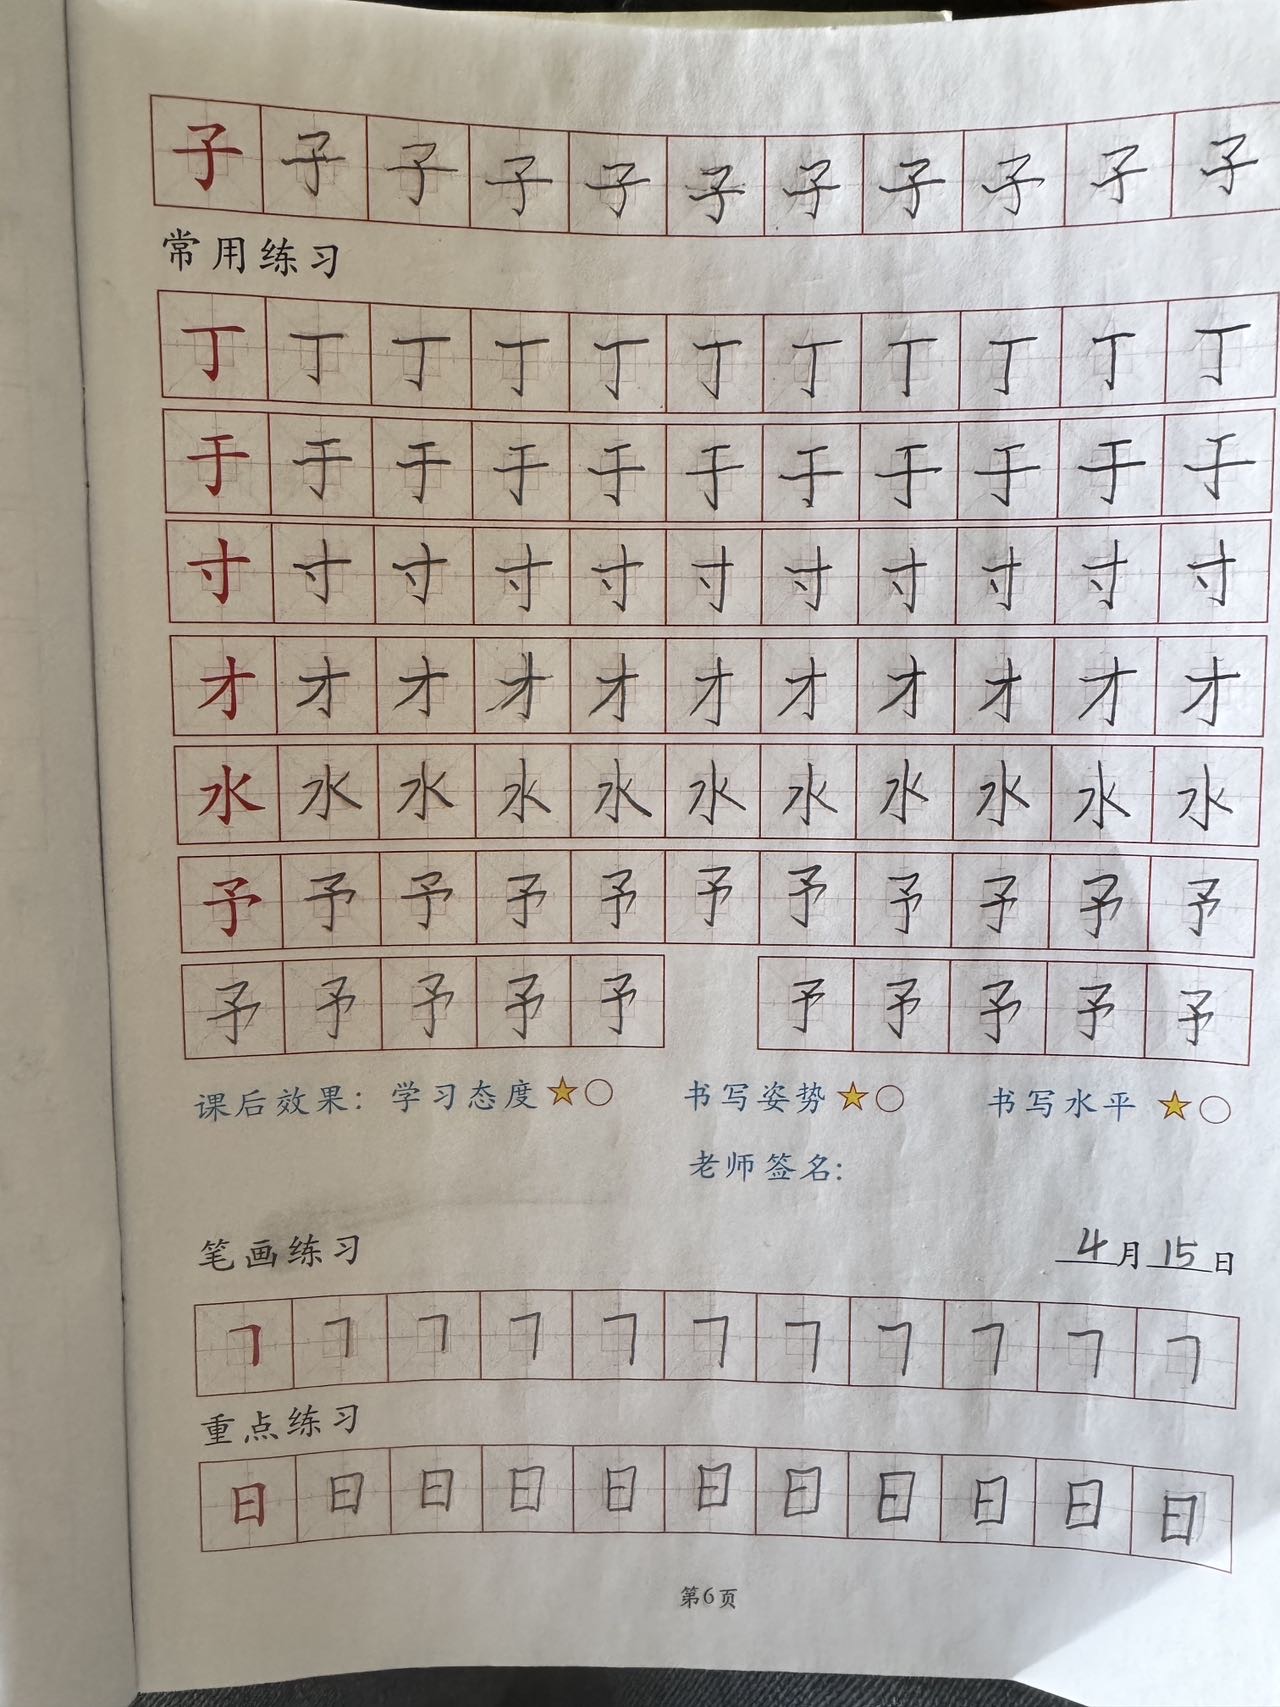 子子子子子子子子子子子
常用练习
丁丁丁丁丁丁丁丁丁丁丁
于于于于于于于于于于于
寸寸寸寸寸寸寸寸寸寸寸
才才才才才才才才才才才
水水水水水水水水水水水
予予予予予予予予予予予
予予予予予 予予予予予
课后效果：学习态度★○ 书写姿势★○ 书写水平★○
老师签名:
笔画练习 4月15日
㇕㇕㇕㇕㇕㇕㇕㇕㇕㇕㇕
重点练习
日日日日日日日日日日日
第6页